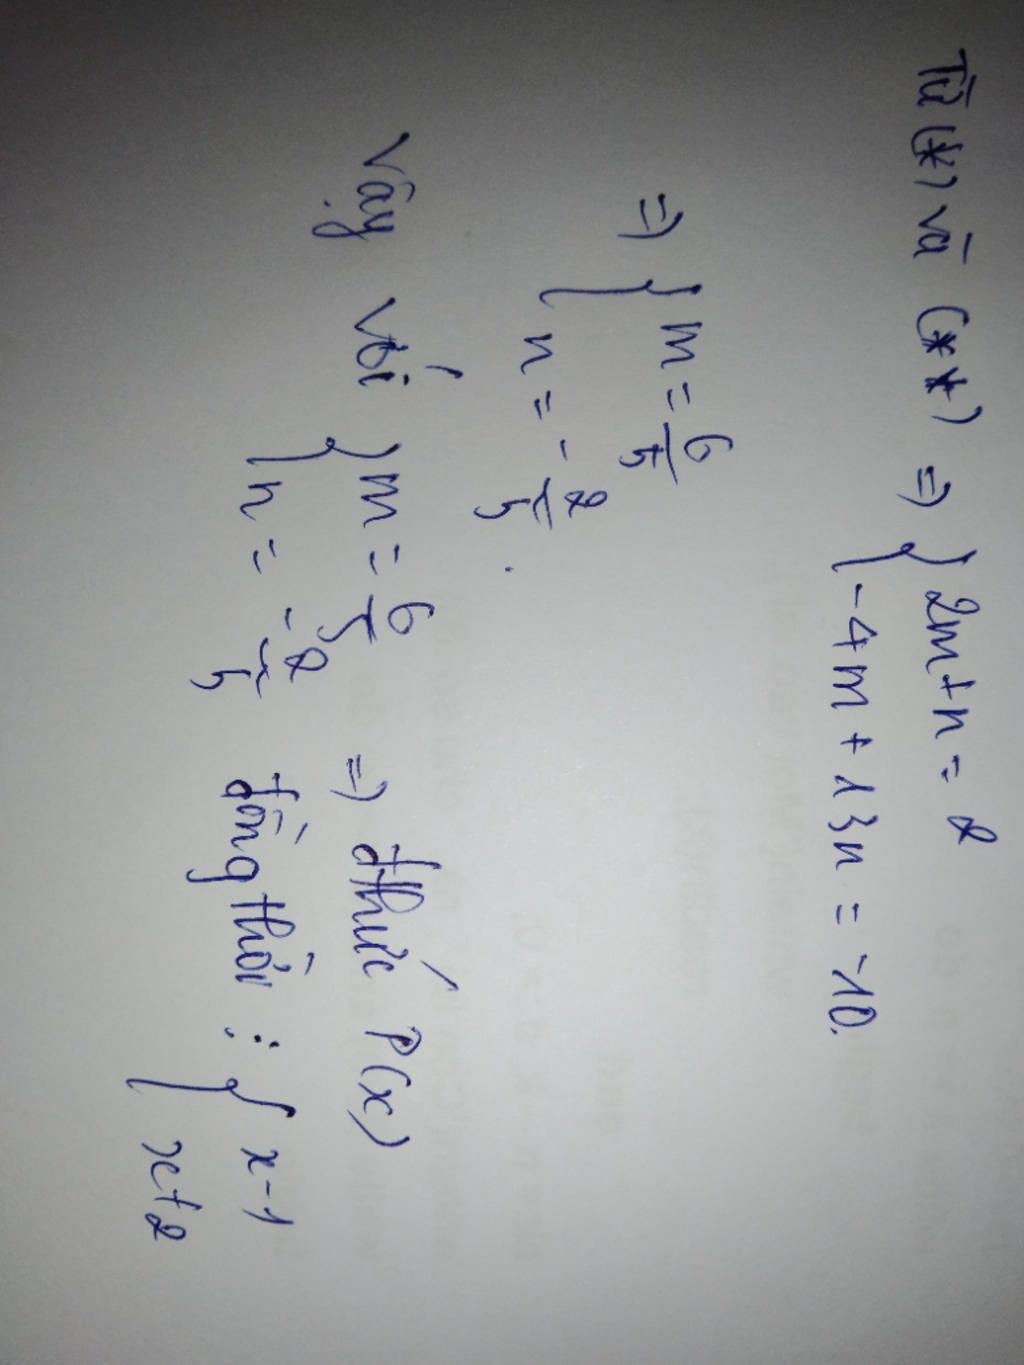 Từ (*) và (**) => { 2m + n = 2
-4m + 13n = -10.
=> { m = 6/5
n = -2/5.
Vậy với { m = 6/5 => đthức P(x)
n = -2/5 đồng thời ⋮ { x-1
x+2